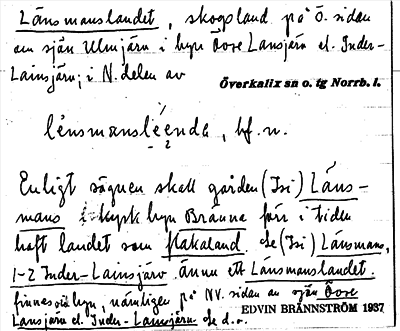 Länsmanslandet, skogsland på Ö. sidan
om sjön Ulmjärv i byn Övre Lansjärv el. Inder-
Lainsjärv; i N. delen av
Överkalix sn o. tg Norrb. l.
lẹnsmansléenda, bf. n.
Enligt sägnen skall gården (Isi) Läns-
mans i kyrkbyn Bränna förr i tiden
haft landet som flakaland. Se (Isi) Länsmans,
1-2 Inder-Lainsjärv ännu ett Länsmanslandet.
finnes vid byn, nämligen på NV. sidan av sjön Övre
Lansjärv el. Inder-Lainsjärv. Se d.o.
EDVIN BRÄNNSTRÖM 1937